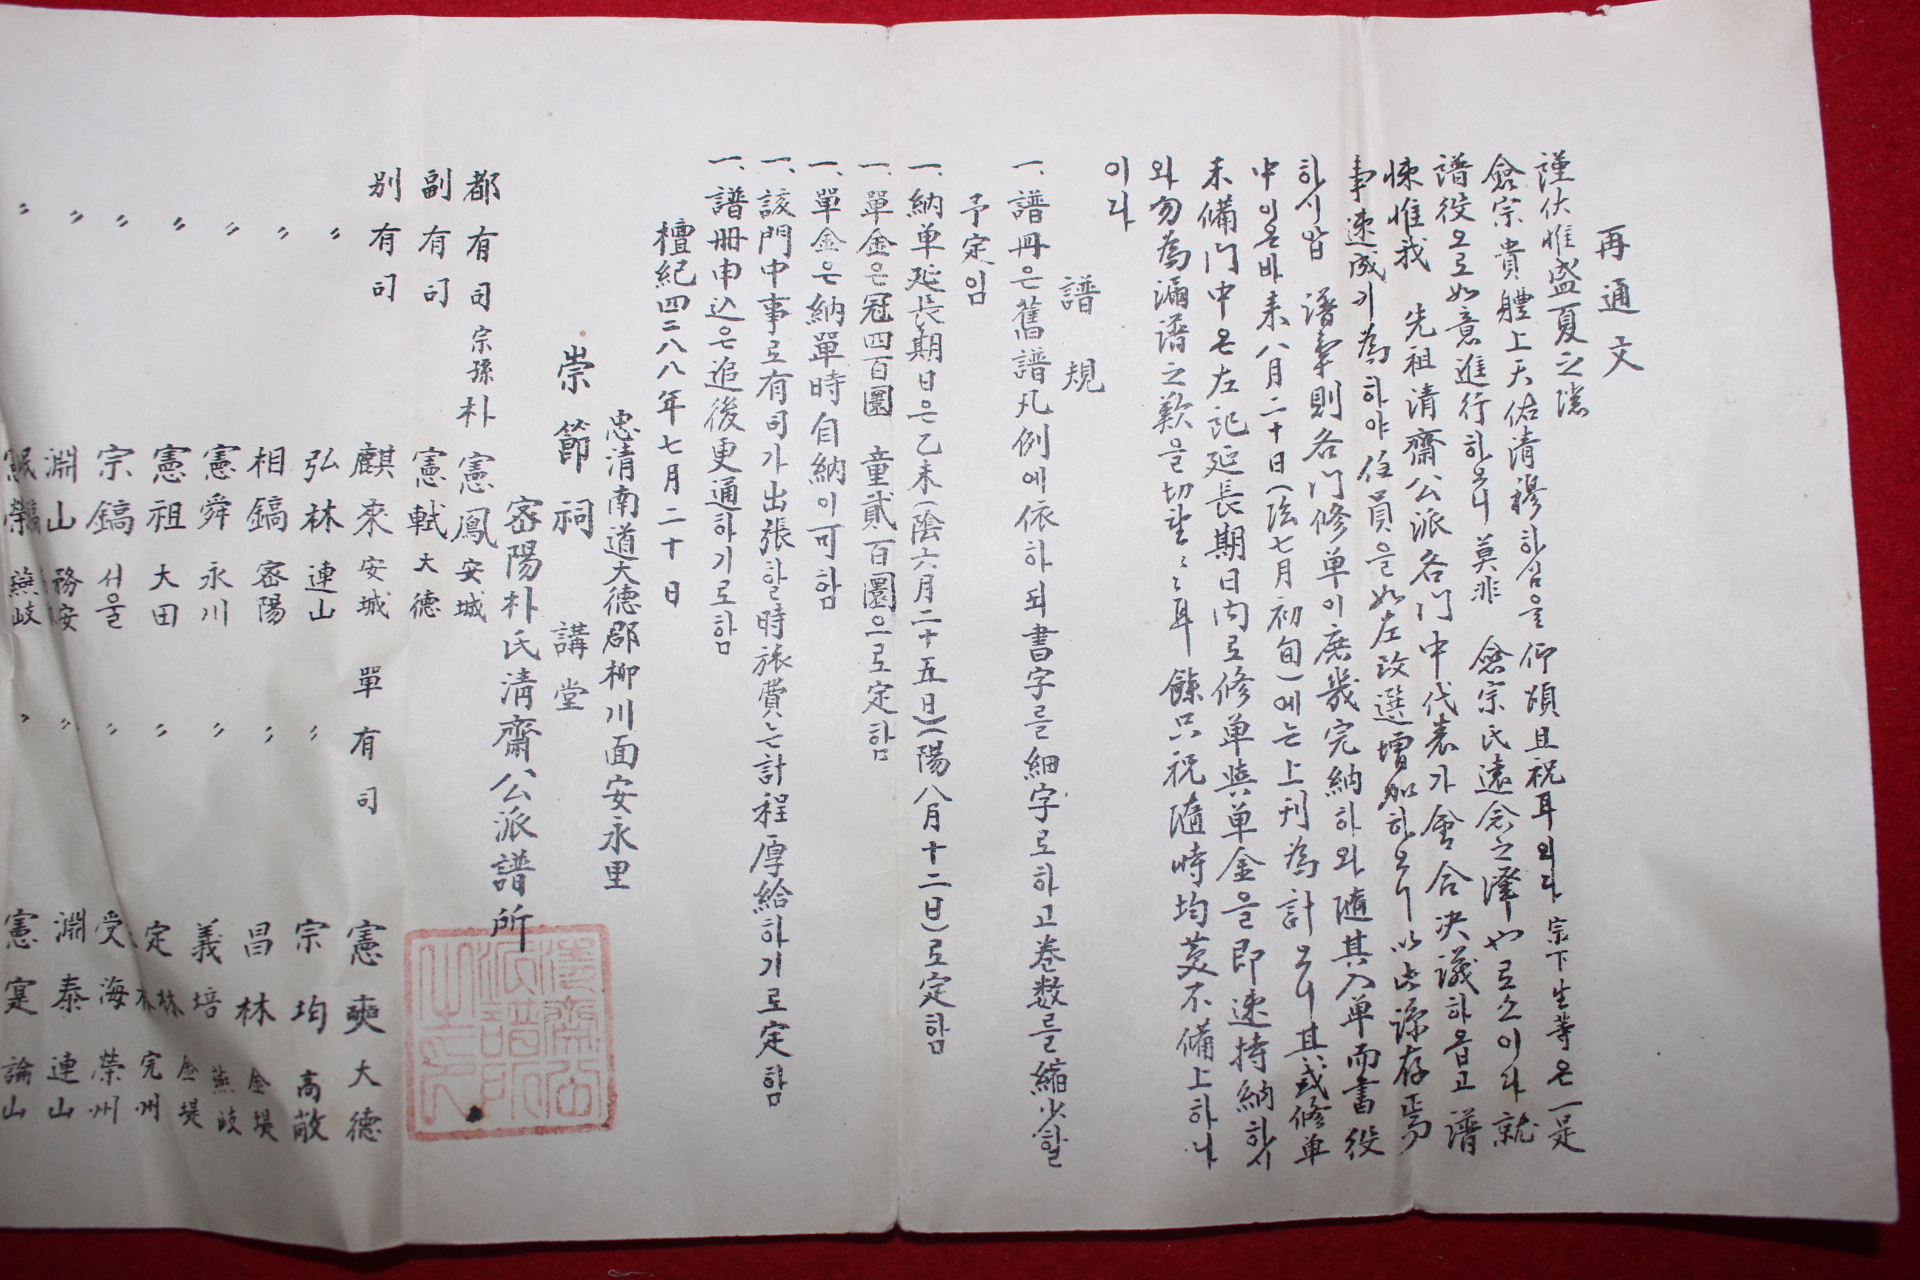 再通文
謹伏惟盛夏之際
僉宗貴體上天佑淸穆하심을仰頌且祝耳외다 宗下生等은一是
譜役으로如意進行하오니莫非 僉宗氏遠念之澤야로소이다就
悚惟我 先祖淸齋公派各门中代表가會合决議하옵고譜
事速成기為하야任員을如左改選增加하오니以此諒存焉
하시압 譜事則各门修单이庶幾完納하와隨其入单而書役
中이온바来八月二十日(陰七月初旬)에는上刊為計오니其或修単
未備门中은左記延長期日內로修单與单金을即速持納하시
와勿為漏譜之歎을切望〻耳 餘只祝隨時均茣不備上하나
이다
譜規
一、譜冊은舊譜凡例에依하되書字를細字로하고卷数를縮少할
予定임
一、納单延長期日은乙未(陰六月二十五日)(陽八月十二日)로定함
一、單金은冠四百圜 童貳百圜으로定함
一、單金은納單時自納이可함
一、該門中事로有司가出張할時旅費는計程厚給하기로定함
一、譜冊申込은追後更通하기로함
檀紀四二八八年七月二十日
忠清南道大德郡柳川面安永里
崇節祠 講堂
密陽朴氏淸齋公派譜所
淸齋公派譜所之印
都有司 宗孫朴憲鳳 安城
副有司 憲軾 大德
別有司 麒來 安城 單有司 憲奭 大德
〃 弘林 連山 〃 宗均 高敞
〃 相鎬 密陽 〃 昌林 金堤
〃 憲舜 永川 〃 義培 燕岐
〃 憲祖 大田 〃 定林 完州
〃 宗鎬 서울 〃 受海 榮州
〃 淵山 務安 〃 淵泰 連山
〃 燕岐 〃 憲寔 論山